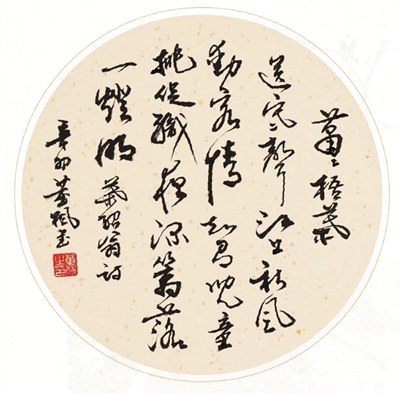 蕭〻梧葉
送寒聲江上秋風
動客情知有兒童
挑促織夜深篱落
一燈明 葉紹翁詩
辛卯